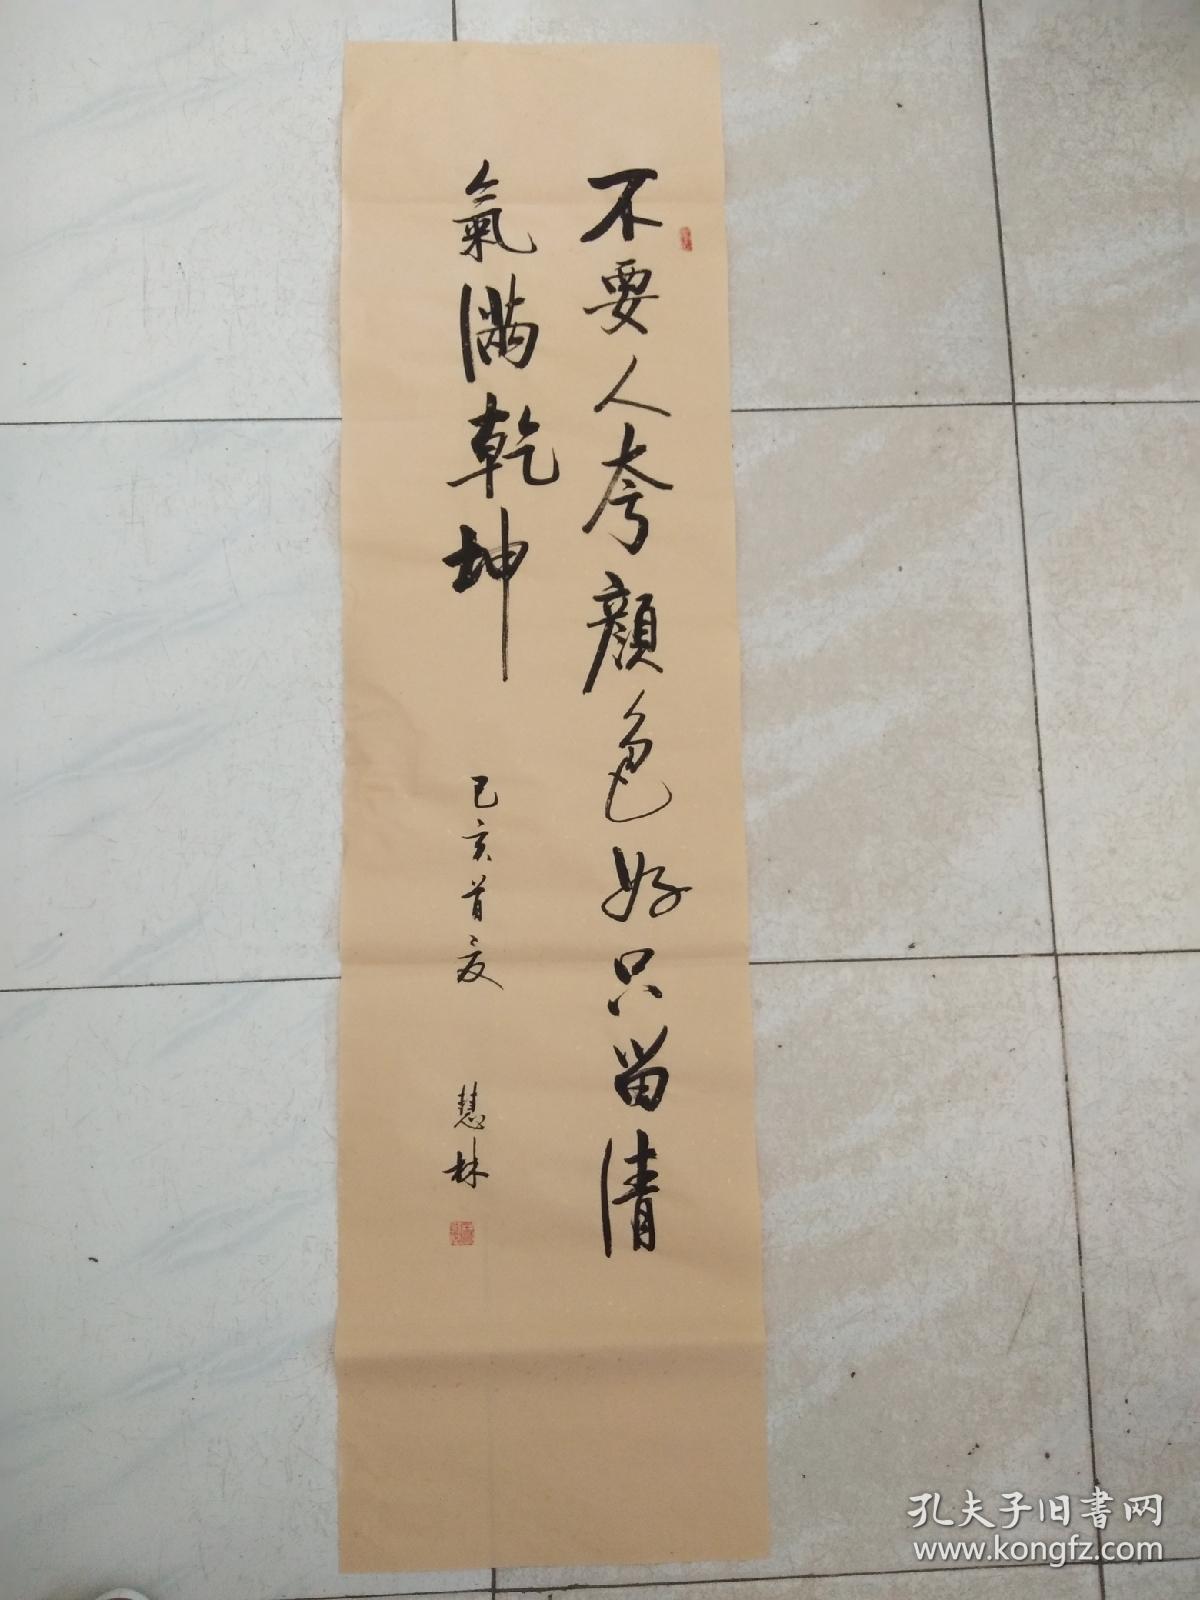 不要人夸顏色好只留清
氣滿乾坤
己亥首夏
慧林
孔夫子旧書网
www.kongfz.com